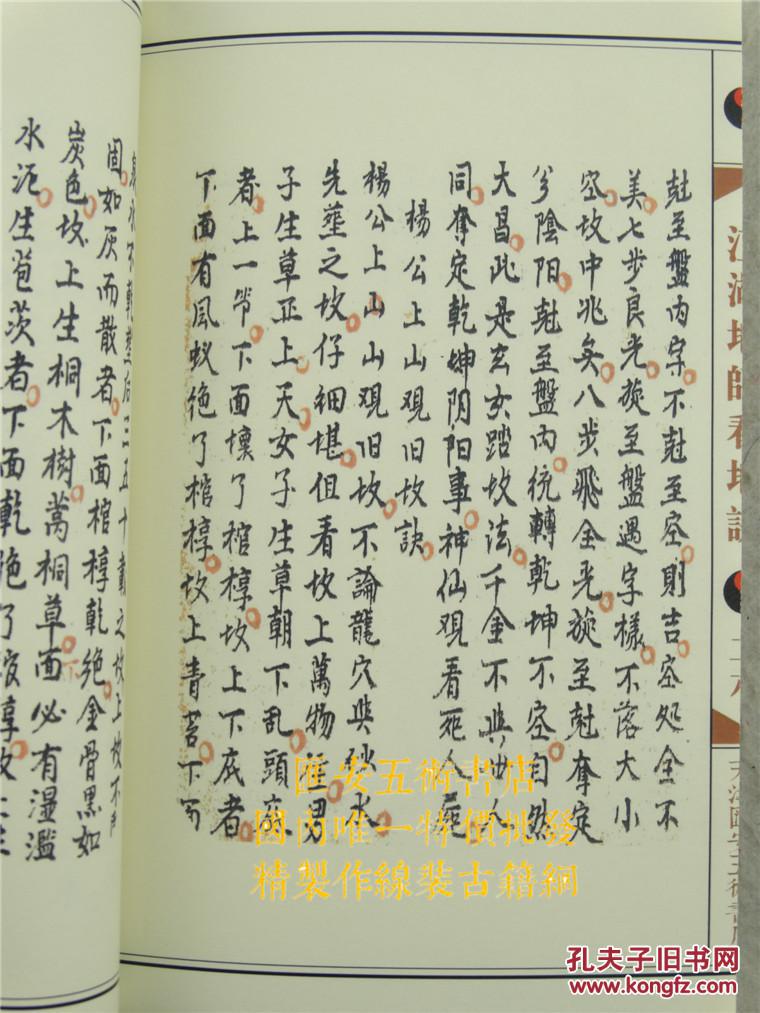 尅至盤内字不尅至空則吉空処全不
美七步良光旋至盤遇字樣不落大小
空坟中兆矣八步飛全光旋至尅奪定
兮陰阳尅至盤内統轉乾坤不空自然
大昌此是玄女踏坟法千金不與
同奪定乾坤阴阳事神仙观看死人
楊公上山观旧坟訣
楊公上山山观旧坟不論龍穴與砂水
先塟之坟仔細堪但看坟上萬物
子生草正上天女子生草朝下乱頭
者上一节下面壞了棺椁坟上下底者
下面有風蚁绝了棺椁坟上青苔下
三五十載之坟上坟不
固如灰而散者下面棺椁乾绝金骨黑如
炭色坟上生桐木樹蒿桐草面必有湿滥
下
水泡生苞茨者下面乾绝了
江湖地師看地訣
匯安五術書店
國内唯一特價批發
精製作線裝古籍網
孔夫子旧书网
www.kongfz.com